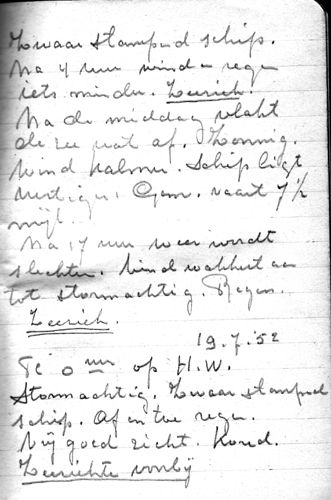 Zwaar stampend schip.
Na 4 uur wind en regen
iets minder. Zeeziek.
Na de middag vlakt
de zee wat af. Zonnig.
Wind kalmer. Schip ligt
rustiger. Gem. vaart 7½
mijl.
Na 17 uur weer wordt
slechter. Wind wakkert aan
tot stormachtig. Regen.
Zeeziek.
19.7.'52
Te 0 uur op H.W.
Stormachtig. Zwaar stampend
schip. Af en toe regen.
Vrij goed zicht. Koud.
Zeeziekte voorbij